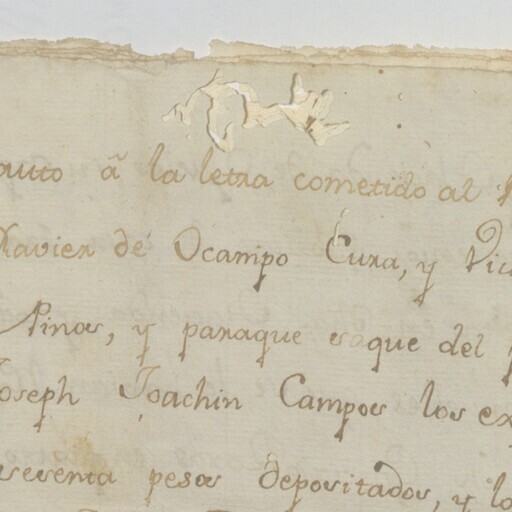 auto â la letra cometido al
Xavier de Ocampo Cura, y Vic
Pinos, y paraque saque del
Joseph Joachin Campos los ex
sesenta pesos depositados, y lo